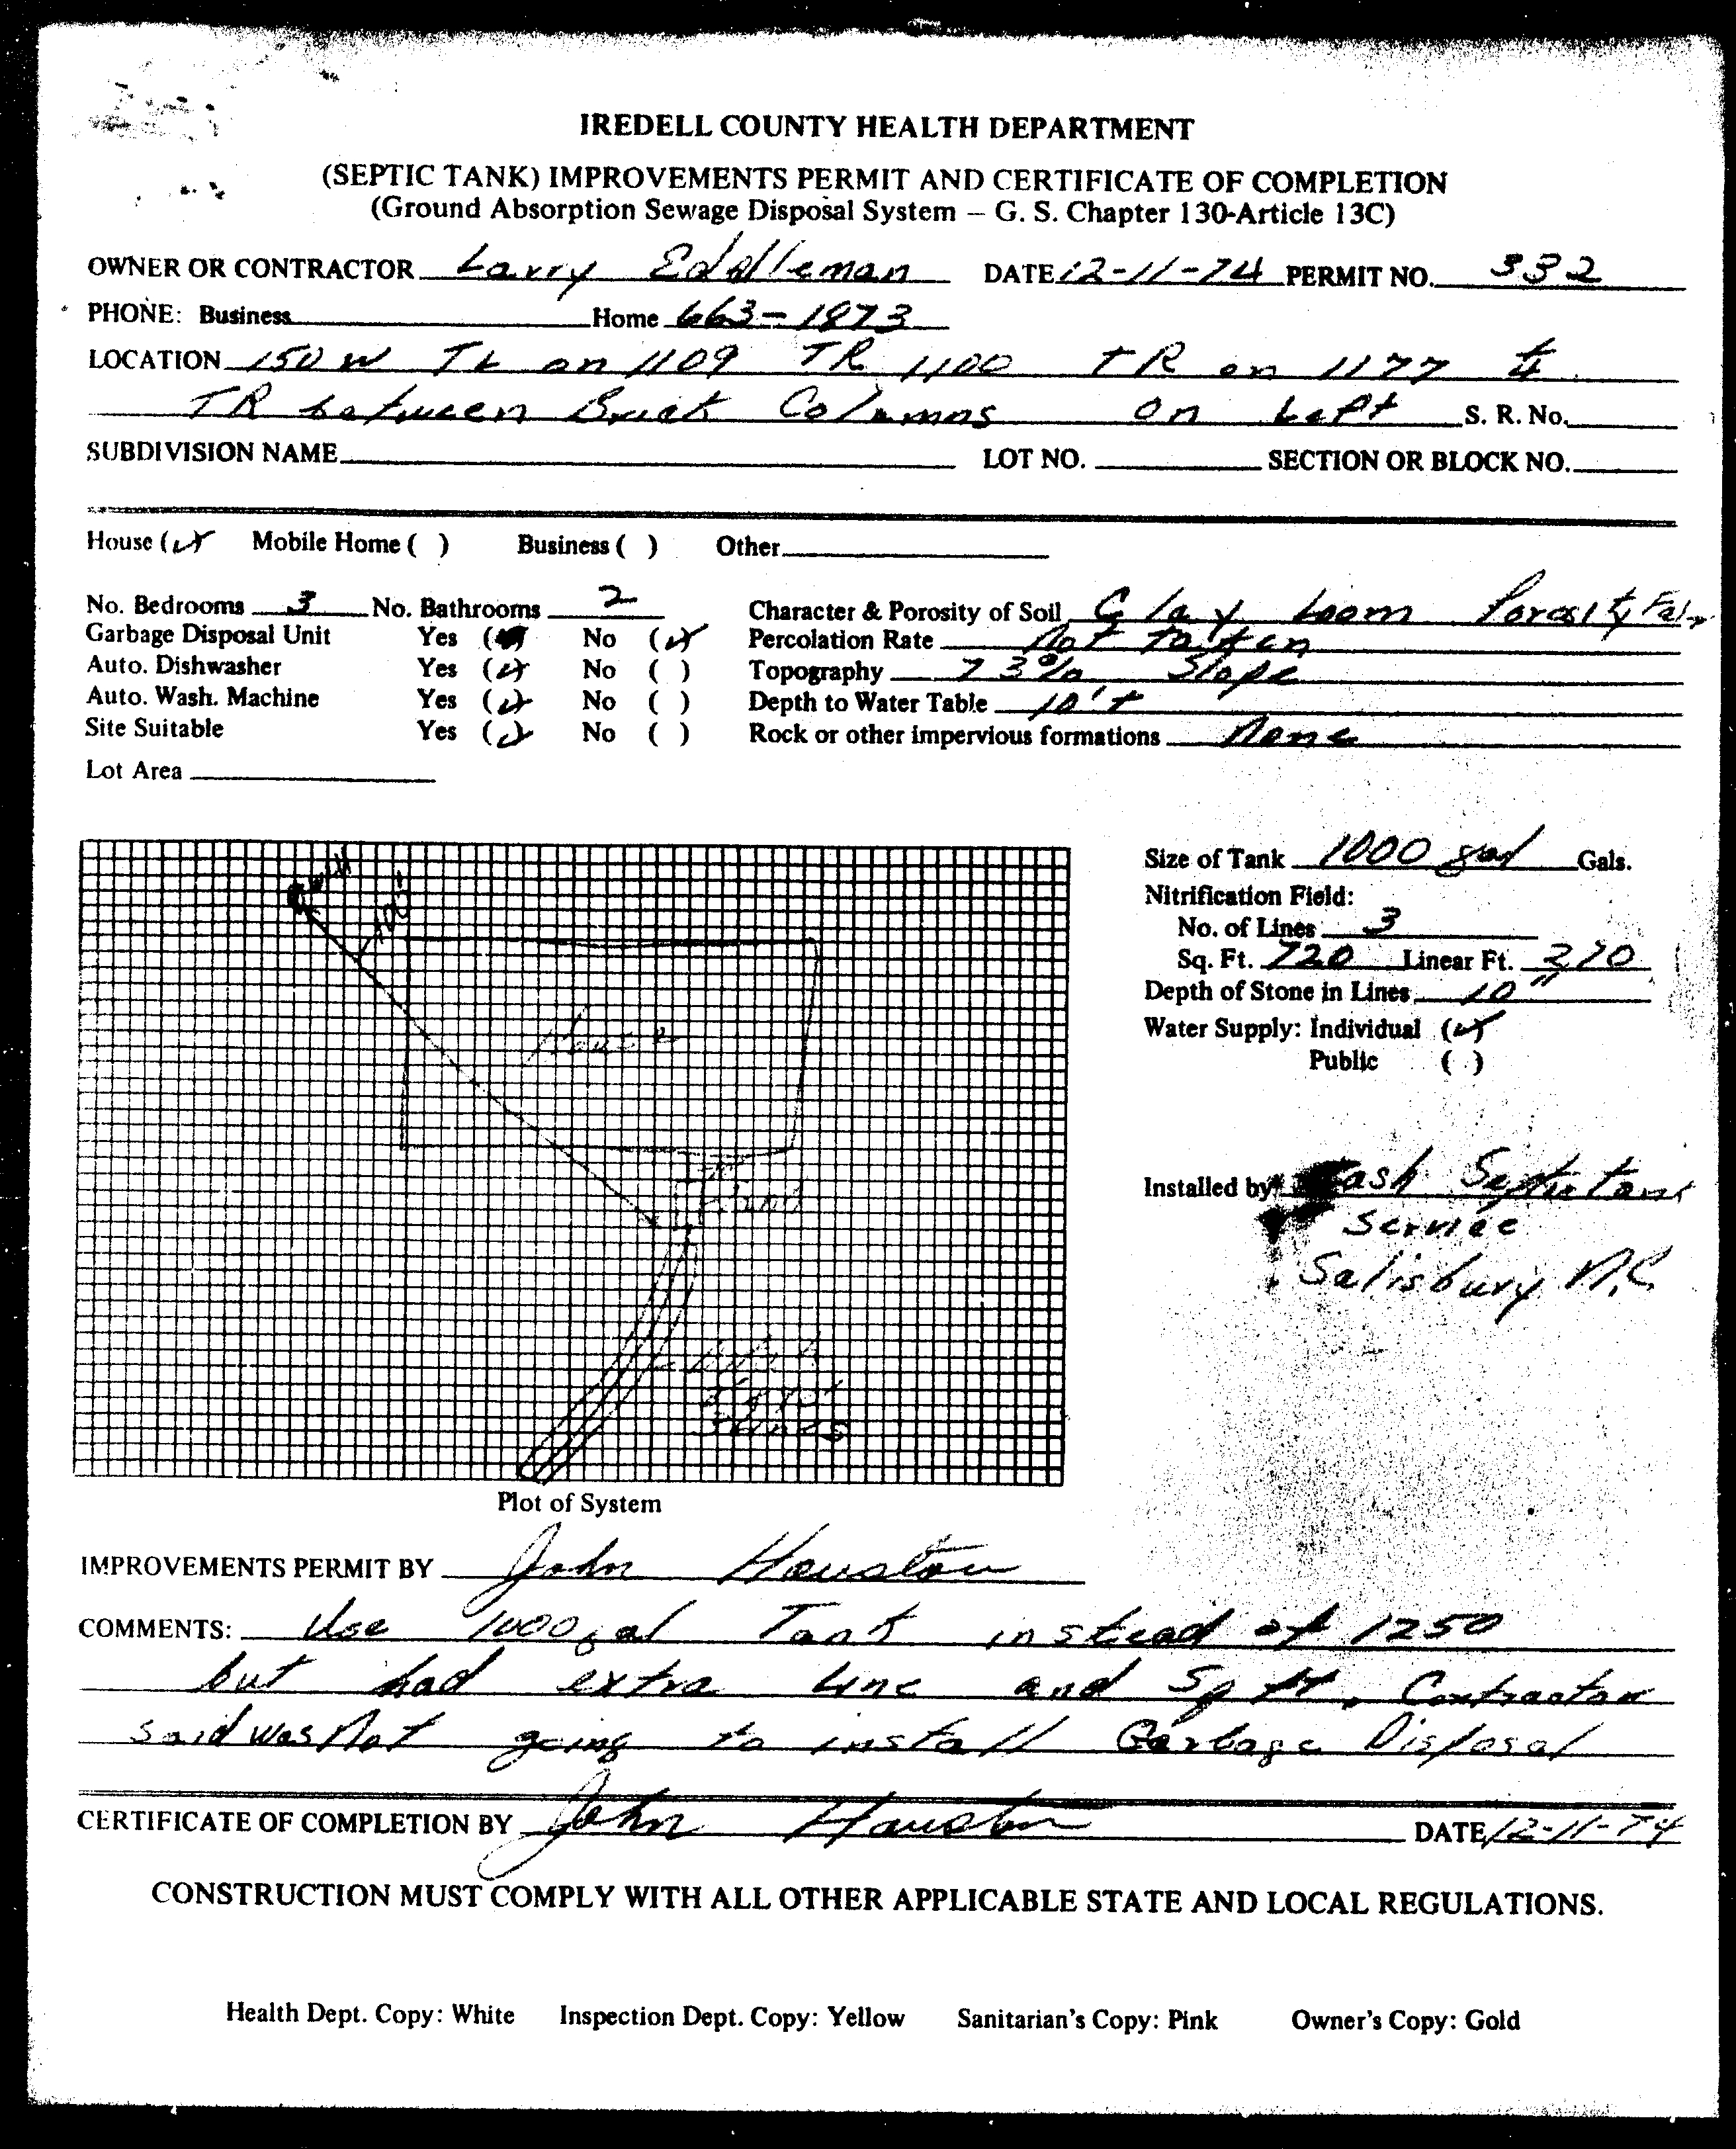 IREDELL COUNTY HEALTH DEPARTMENT
(SEPTIC TANK) IMPROVEMENTS PERMIT AND CERTIFICATE OF COMPLETION
(Ground Absorption Sewage Disposal System – G. S. Chapter 130-Article 13C)
OWNER OR CONTRACTOR Larry Eddleman DATE 12-11-74 PERMIT NO. 332
PHONE: Business Home 663-1873
LOCATION 150 W TL on 1109 TR 1100 TR on 1177 &
TR between Brick Columns on Left S. R. No.
SUBDIVISION NAME LOT NO. SECTION OR BLOCK NO.
House (✓) Mobile Home ( ) Business ( ) Other
No. Bedrooms 3 No. Bathrooms 2 Character & Porosity of Soil Clay Loom Porosity Fair
Garbage Disposal Unit Yes ( ) No (✓) Percolation Rate Not Taken
Auto. Dishwasher Yes (✓) No ( ) Topography 73% Slope
Auto. Wash. Machine Yes (✓) No ( ) Depth to Water Table 10'+
Site Suitable Yes (✓) No ( ) Rock or other impervious formations None
Lot Area
Size of Tank 1000 gal Gals.
Nitrification Field:
No. of Lines 3
Sq. Ft. 720 Linear Ft.
Depth of Stone in Lines 10"
Water Supply: Individual (✓)
Public ( )
well
100'
House
Installed by Septic Tank
Service
Salisbury N.C.
Plot of System
IMPROVEMENTS PERMIT BY John Houston
COMMENTS: Use 1000 gal Tank instead of 1250
but had extra Line and Sq ft. Contractor
said was Not going to install Garbage Disposal
CERTIFICATE OF COMPLETION BY John Houston DATE 12-11-74
CONSTRUCTION MUST COMPLY WITH ALL OTHER APPLICABLE STATE AND LOCAL REGULATIONS.
Health Dept. Copy: White Inspection Dept. Copy: Yellow Sanitarian's Copy: Pink Owner's Copy: Gold